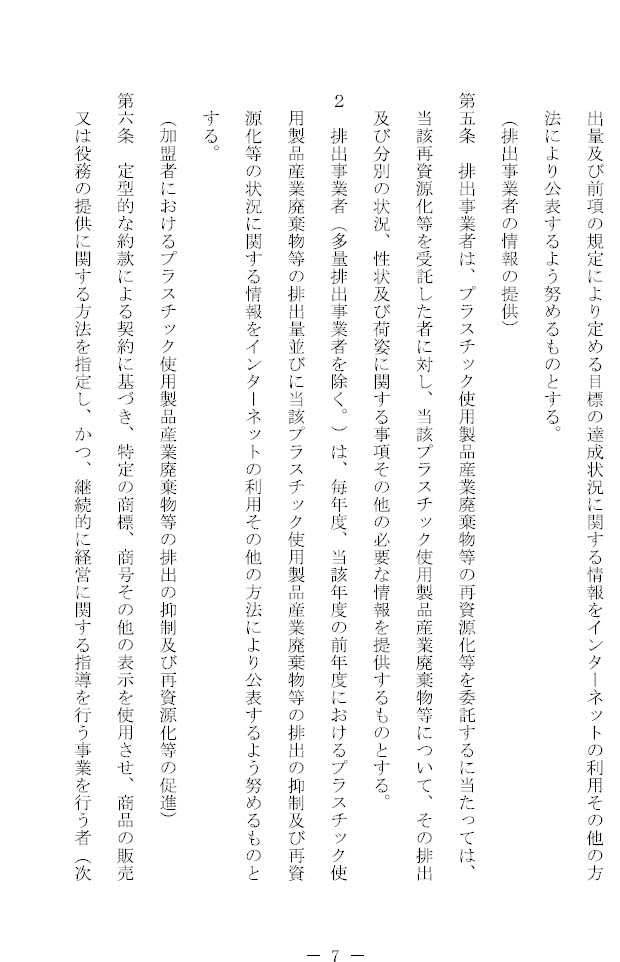 出量及び前項の規定により定める目標の達成状況に関する情報をインターネットの利用その他の方
法により公表するよう努めるものとする。
（排出事業者の情報の提供）
第五条　排出事業者は、プラスチック使用製品産業廃棄物等の再資源化等を委託するに当たっては、
当該再資源化等を受託した者に対し、当該プラスチック使用製品産業廃棄物等について、その排出
及び分別の状況、性状及び荷姿に関する事項その他の必要な情報を提供するものとする。
２　排出事業者（多量排出事業者を除く。）は、毎年度、当該年度の前年度におけるプラスチック使
用製品産業廃棄物等の排出量並びに当該プラスチック使用製品産業廃棄物等の排出の抑制及び再資
源化等の状況に関する情報をインターネットの利用その他の方法により公表するよう努めるものと
する。
（加盟者におけるプラスチック使用製品産業廃棄物等の排出の抑制及び再資源化等の促進）
第六条　定型的な約款による契約に基づき、特定の商標、商号その他の表示を使用させ、商品の販売
又は役務の提供に関する方法を指定し、かつ、継続的に経営に関する指導を行う事業を行う者（次
― 7 ―